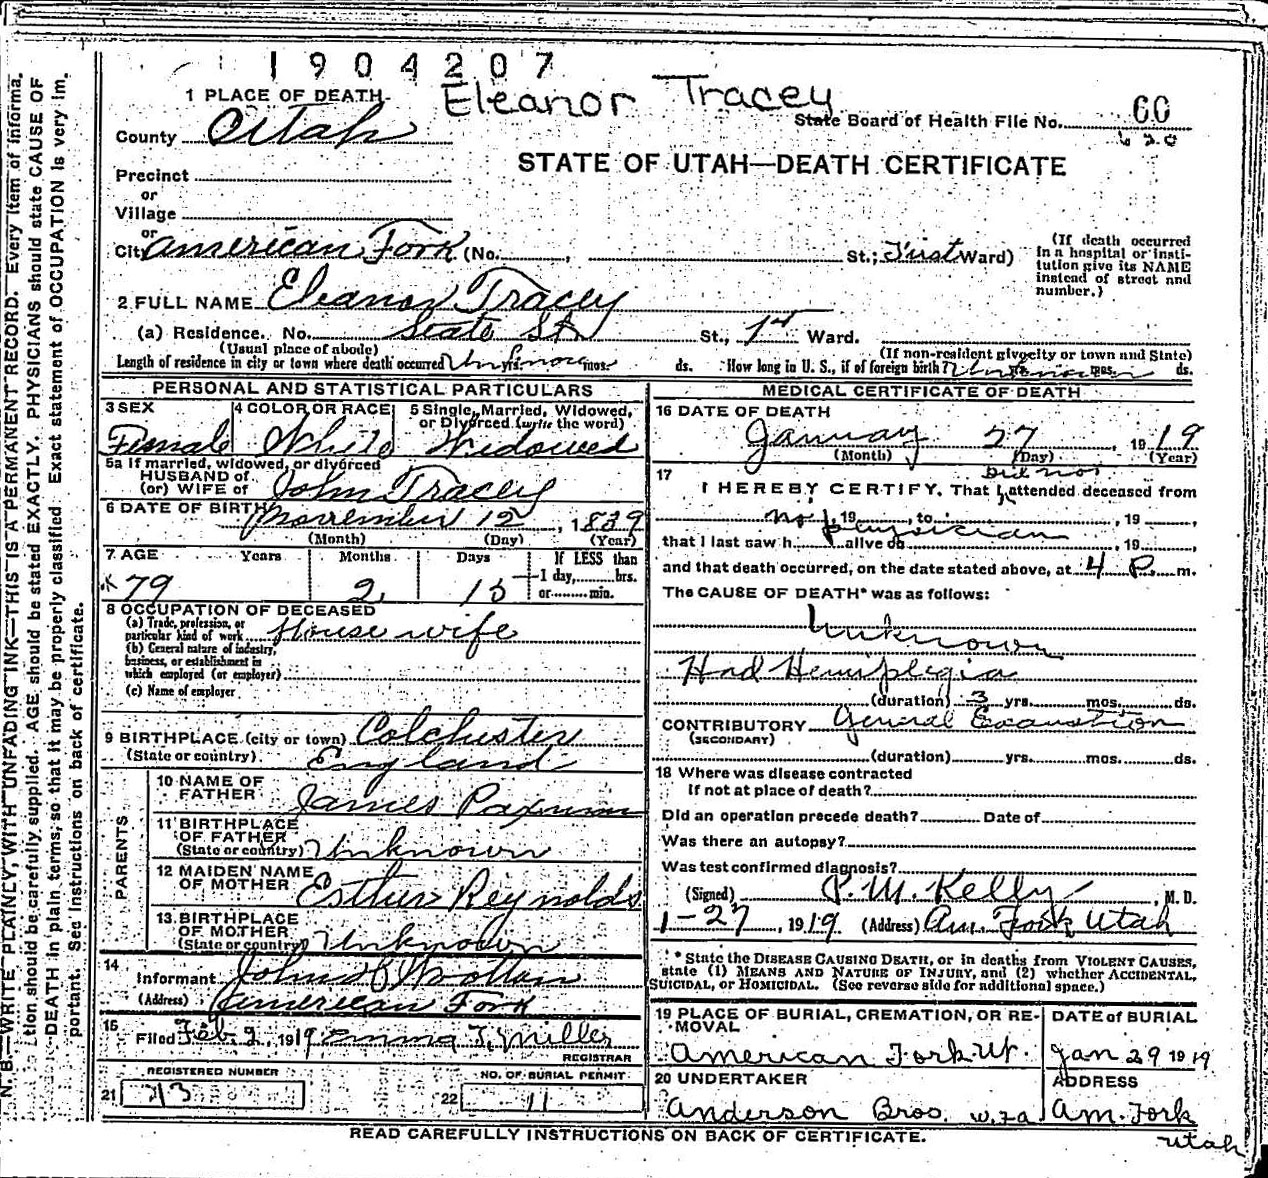 1904207
Eleanor Tracey
1 PLACE OF DEATH
County Utah
State Board of Health File No. 60
620
STATE OF UTAH—DEATH CERTIFICATE
Precinct
or
Village
or
City American Fork (No. , St.; First Ward)
(If death occurred in a hospital or institution give its NAME instead of street and number.)
2 FULL NAME Eleanor Tracey
(a) Residence. No. State St St., 1st Ward.
(Usual place of abode) (If non-resident give city or town and State)
Length of residence in city or town where death occurred Unknown yrs. mos. ds. How long in U. S., if of foreign birth? Unknown yrs. mos. ds.
PERSONAL AND STATISTICAL PARTICULARS
3 SEX Female
4 COLOR OR RACE White
5 Single, Married, Widowed, or Divorced (write the word) Widowed
5a If married, widowed, or divorced
HUSBAND of
(or) WIFE of John Tracey
6 DATE OF BIRTH November 12, 1839
(Month) (Day) (Year)
7 AGE Years Months Days If LESS than
79 2 15 1 day, hrs.
or min.
8 OCCUPATION OF DECEASED
(a) Trade, profession, or particular kind of work House wife
(b) General nature of industry, business, or establishment in which employed (or employer)
(c) Name of employer
9 BIRTHPLACE (city or town) Colchester
(State or country) England
PARENTS
10 NAME OF FATHER James Paxman
11 BIRTHPLACE OF FATHER (State or country) Unknown
12 MAIDEN NAME OF MOTHER Esther Reynolds
13 BIRTHPLACE OF MOTHER (State or country) Unknown
14 Informant John S Wootton
(Address) American Fork
15 Filed Feb. 2, 1919 Emma T. Miller
REGISTRAR
REGISTERED NUMBER NO. OF BURIAL PERMIT
21 213 22 11
MEDICAL CERTIFICATE OF DEATH
16 DATE OF DEATH
January 27, 1919
(Month) (Day) (Year)
17 did not
I HEREBY CERTIFY, That I attended deceased from
no physician, 19 , to , 19 ,
that I last saw h alive on , 19 ,
and that death occurred, on the date stated above, at 4 P. m.
The CAUSE OF DEATH* was as follows:
Unknown
Had Hemiplegia
(duration) 3 yrs. mos. ds.
CONTRIBUTORY General Exaustion
(SECONDARY)
(duration) yrs. mos. ds.
18 Where was disease contracted
If not at place of death?
Did an operation precede death? Date of
Was there an autopsy?
Was test confirmed diagnosis?
(Signed) P. M. Kelly, M. D.
1-27, 1919 (Address) Am. Fork Utah
* State the DISEASE CAUSING DEATH, or in deaths from VIOLENT CAUSES,
state (1) MEANS AND NATURE OF INJURY, and (2) whether ACCIDENTAL,
SUICIDAL, or HOMICIDAL. (See reverse side for additional space.)
19 PLACE OF BURIAL, CREMATION, OR REMOVAL DATE of BURIAL
American Fork Ut. Jan 29 1919
20 UNDERTAKER ADDRESS
Anderson Bros. Am. Fork
Utah
READ CAREFULLY INSTRUCTIONS ON BACK OF CERTIFICATE.
N. B.—WRITE PLAINLY, WITH UNFADING INK—THIS IS A PERMANENT RECORD. Every item of information should be carefully supplied. AGE should be stated EXACTLY. PHYSICIANS should state CAUSE OF DEATH in plain terms, so that it may be properly classified. Exact statement of OCCUPATION is very important. See instructions on back of certificate.